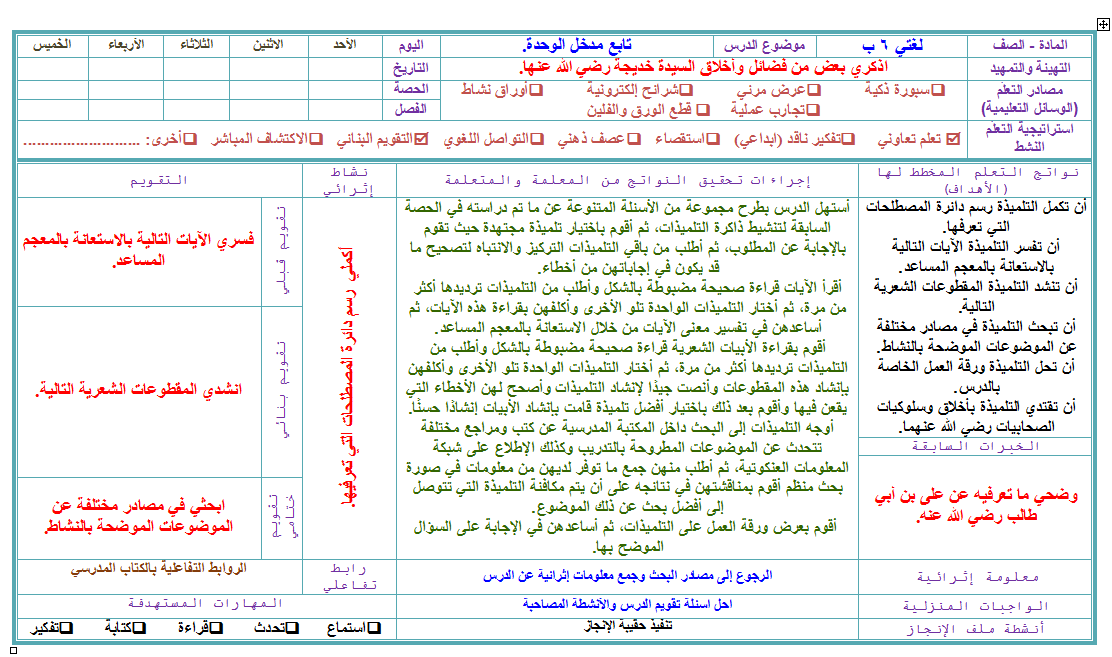 المادة - الصف لغتي ٦ ب موضوع الدرس تابع مدخل الوحدة. اليوم الأحد الاثنين الثلاثاء الأربعاء الخميس
التهيئة والتمهيد اذكري بعض من فضائل وأخلاق السيدة خديجة رضي الله عنها. التاريخ
مصادر التعلم
(الوسائل التعليمية)
❑سبورة ذكية ❑عرض مرئي ❑شرائح إلكترونية ❑أوراق نشاط
❑تجارب عملية ❑ قطع الورق والفلين
الحصة
الفصل
استراتيجية التعلم
النشط
☑ تعلم تعاوني ❑تفكير ناقد (ابداعي) ❑استقصاء ❑عصف ذهني ❑التواصل اللغوي ☑التقويم البنائي ❑الاكتشاف المباشر ❑أخرى: ..........................
نواتج التعلم المخطط لها
(الأهداف)
إجراءات تحقيق النواتج من المعلمة والمتعلمة
نشاط
إثرائي
التقويم
أن تكمل التلميذة رسم دائرة المصطلحات
التي تعرفها.
أن تفسر التلميذة الآيات التالية
بالاستعانة بالمعجم المساعد.
أن تنشد التلميذة المقطوعات الشعرية
التالية.
أن تبحث التلميذة في مصادر مختلفة
عن الموضوعات الموضحة بالنشاط.
أن تحل التلميذة ورقة العمل الخاصة
بالدرس.
أن تقتدي التلميذة بأخلاق وسلوكيات
الصحابيات رضي الله عنهما.
الخبرات السابقة
وضحي ما تعرفيه عن علي بن أبي
طالب رضي الله عنه.
أستهل الدرس بطرح مجموعة من الأسئلة المتنوعة عن ما تم دراسته في الحصة
السابقة لتنشيط ذاكرة التلميذات، ثم أقوم باختيار تلميذة مجتهدة حيث تقوم
بالإجابة عن المطلوب، ثم أطلب من باقي التلميذات التركيز والانتباه لتصحيح ما
قد يكون في إجاباتهن من أخطاء.
أقرأ الآيات قراءة صحيحة مضبوطة بالشكل وأطلب من التلميذات ترديدها أكثر
من مرة، ثم أختار التلميذات الواحدة تلو الأخرى وأكلفهن بقراءة هذه الآيات، ثم
أساعدهن في تفسير معنى الآيات من خلال الاستعانة بالمعجم المساعد.
أقوم بقراءة الأبيات الشعرية قراءة صحيحة مضبوطة بالشكل وأطلب من
التلميذات ترديدها أكثر من مرة، ثم أختار التلميذات الواحدة تلو الأخرى وأكلفهن
بإنشاد هذه المقطوعات وأنصت جيدًا لإنشاد التلميذات وأصحح لهن الأخطاء التي
يقعن فيها وأقوم بعد ذلك باختيار أفضل تلميذة قامت بإنشاد الأبيات إنشادًا حسنًا.
أوجه التلميذات إلى البحث داخل المكتبة المدرسية عن كتب ومراجع مختلفة
تتحدث عن الموضوعات المطروحة بالتدريب وكذلك الإطلاع على شبكة
المعلومات العنكوتية، ثم أطلب منهن جمع ما توفر لديهن من معلومات في صورة
بحث منظم أقوم بمناقشتهن في نتائجه على أن يتم مكافئة التلميذة التي تتوصل
إلى أفضل بحث عن ذلك الموضوع.
أقوم بعرض ورقة العمل على التلميذات، ثم أساعدهن في الإجابة على السؤال
الموضح بها.
أكملي رسم دائرة المصطلحات التي تعرفيها.
تقويم قبلي
فسري الآيات التالية بالاستعانة بالمعجم
المساعد.
تقويم بنائي
انشدي المقطوعات الشعرية التالية.
تقويم
ختامي
ابحثي في مصادر مختلفة عن
الموضوعات الموضحة بالنشاط.
معلومة إثرائية الرجوع إلى مصادر البحث وجمع معلومات إثرائية عن الدرس
رابط
تفاعلي
الروابط التفاعلية بالكتاب المدرسي
الواجبات المنزلية احل اسئلة تقويم الدرس والأنشطة المصاحبة المهارات المستهدفة
أنشطة ملف الإنجاز تنفيذ حقيبة الإنجاز ❑استماع ❑تحدث ❑قراءة ❑كتابة ❑تفكير